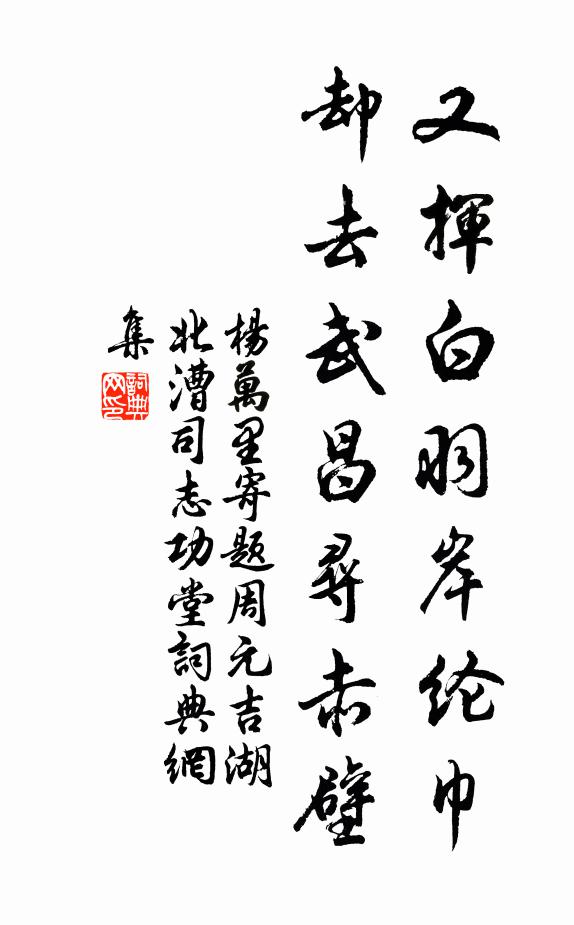 又揮白羽岸纶巾
却去武昌尋赤壁
楊萬里寄題周元吉湖
北漕司志功堂詞典網
集
詞典
网印